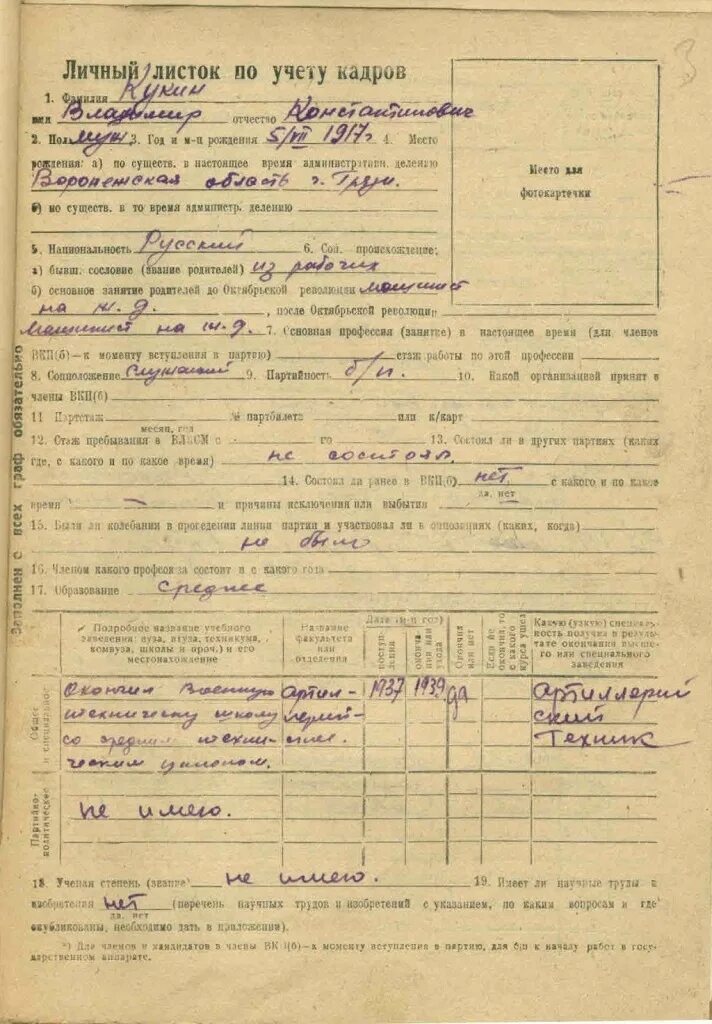 3
Личный листок по учету кадров
1. Фамилия Кукин
имя Владимир отчество Константинович
2. Пол муж 3. Год и м-ц рождения 5/VII 1917г 4. Место
рождения: а) по существ. в настоящее время административн. делению
Воронежская область г. Грязи.
б) по существ. в то время администр. делению
Место для
фотокарточки
5. Национальность Русский 6. Соц. происхождение:
а) бывш. сословие (звание родителей) из рабочих
б) основное занятие родителей до Октябрьской революции машинист
на ж. д. , после Октябрьской революции
Машинист на ж. д. 7. Основная профессия (занятие) в настоящее время (для членов
ВКП(б)—к моменту вступления в партию) стаж работы по этой профессии
8. Соцположение служащий 9. Партийность б/п. 10. Какой организацией принят в
члены ВКП(б)
11 Партстаж № партбилета или к/карт
месяц, год
12. Стаж пребывания в ВЛКСМ с по 13. Состоял ли в других партиях (каких
где, с какого и по какое время) не состоял.
14. Состоял ли ранее в ВКП(б) нет с какого и по какое
да, нет
время — и причины исключения или выбытия
15. Были ли колебания в проведении линии партии и участвовал ли в оппозициях (каких, когда)
не было
16. Членом какого профсоюза состоит и с какого года
17. Образование среднее
Заполнен с всех граф обязательно
Подробное название учебного заведения: вуза, втуза, техникума, комвуза, школы и проч.) и его местонахождение
Название факультета или отделения
Дата (м-ц год)
поступления
окончания или ухода
Окончил или нет
Если не окончил, то с какого курса ушел
Какую (узкую) специальность получил в результате окончания высшего или специального заведения
Общее и специальное
Окончил Военную артил- 1937 1939 да Артиллерий
техническу школу лерий- ский
со средним техни- ское. Техник
ческим цензом.
Партийно-политическое
не имею.
18. Ученая степень (звание не имею. 19. Имеет ли научные труды и
изобретения нет (перечень научных трудов и изобретений с указанием, по каким вопросам и где
да, нет
опубликованы, необходимо дать в приложении).
*) Для членов и кандидатов в члены ВКП(б)—к моменту вступления в партию, для б/п к началу работ в государственном аппарате.